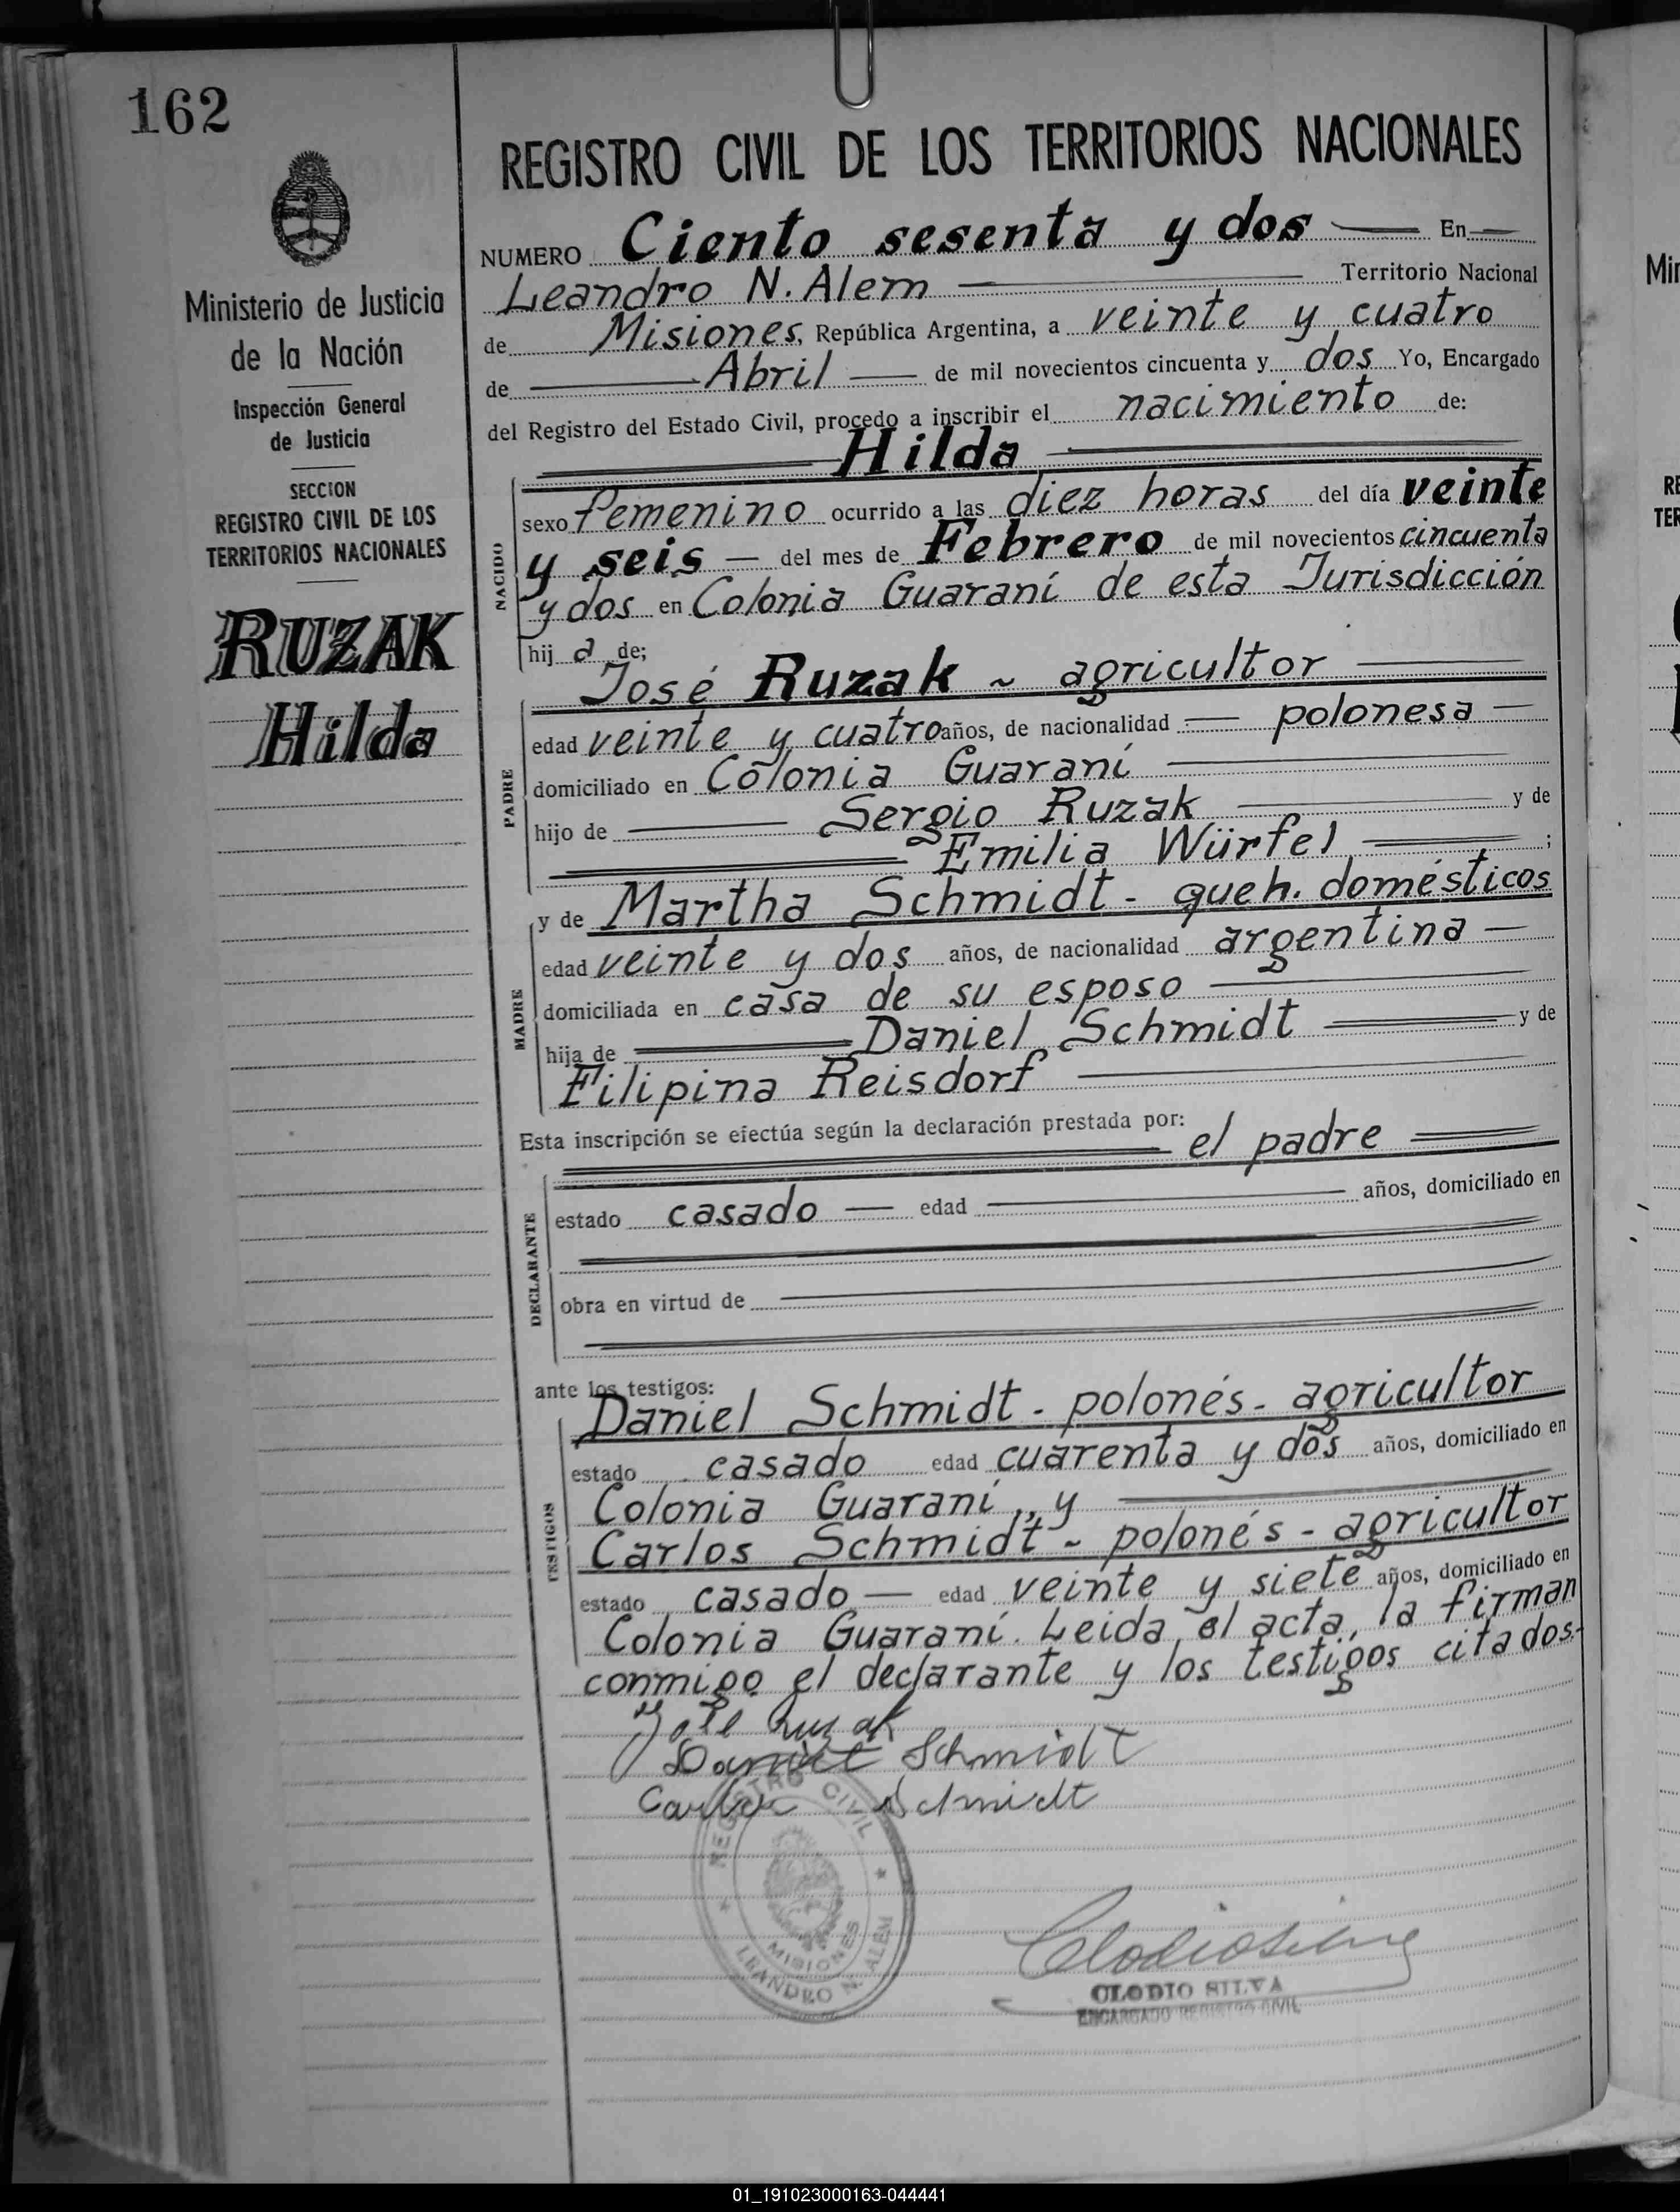 162
Ministerio de Justicia
de la Nación
Inspección General
de Justicia
SECCION
REGISTRO CIVIL DE LOS
TERRITORIOS NACIONALES
RUZAK
Hilda
REGISTRO CIVIL DE LOS TERRITORIOS NACIONALES
NUMERO Ciento sesenta y dos En
Leandro N. Alem Territorio Nacional
de Misiones, República Argentina, a veinte y cuatro
de Abril de mil novecientos cincuenta y dos Yo, Encargado
del Registro del Estado Civil, procedo a inscribir el nacimiento de:
Hilda
NACIDO
sexo femenino ocurrido a las diez horas del día veinte
y seis — del mes de Febrero de mil novecientos cincuenta
y dos en Colonia Guaraní de esta Jurisdicción
hij a de;
José Ruzak ~ agricultor
PADRE
edad veinte y cuatro años, de nacionalidad — polonesa —
domiciliado en Colonia Guaraní
hijo de Sergio Ruzak y de
Emilia Würfel ;
y de Martha Schmidt - queh. domésticos
MADRE
edad veinte y dos años, de nacionalidad argentina —
domiciliada en casa de su esposo
hija de Daniel Schmidt y de
Filipina Reisdorf
Esta inscripción se efectúa según la declaración prestada por:
el padre
DECLARANTE
estado casado — edad años, domiciliado en
obra en virtud de
ante los testigos:
Daniel Schmidt - polonés - agricultor
TESTIGOS
estado casado edad cuarenta y dos años, domiciliado en
Colonia Guaraní, y
Carlos Schmidt - polonés - agricultor
estado casado — edad veinte y siete años, domiciliado en
Colonia Guaraní. Leida el acta, la firman
conmigo el declarante y los testigos citados.-
José Ruzak
Daniel Schmidt
Carlos Schmidt
REGISTRO CIVIL
MISIONES
LEANDRO N. ALEM
Clodio Silva
CLODIO SILVA
ENCARGADO REGISTRO CIVIL
01_191023000163-044441